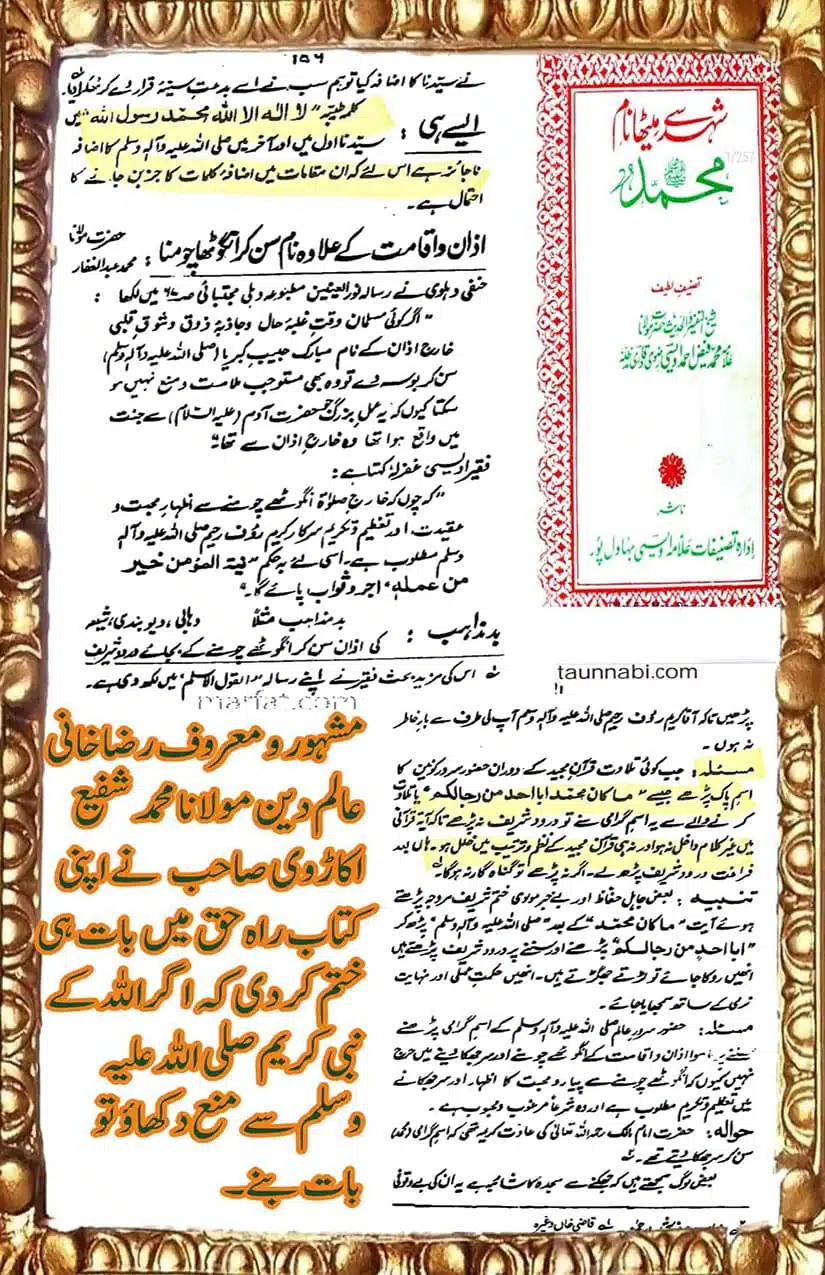 ۱۵۶
نے سیدنا کا اضافہ کیا تو ہم سب نے اسے بدعتِ سیئہ قرار دے کر ٹھکرا دیا۔
ایسے ہی : کلمہ طیبہ "لا الہ الا اللہ محمد رسول اللہ" میں
سیدنا اول میں اور آخر میں صلی اللہ علیہ وآلہ وسلم کا اضافہ
ناجائز ہے اس لئے کہ ان مقامات میں اضافۂ کلمات کا جز بن جانے کا
احتمال ہے۔
اذان و اقامت کے علاوہ نام سن کر انگوٹھا چومنا : حضرت مولانا
محمد عبدالغفار
حنفی دہلوی نے رسالہ نورالعینین مطبوعہ دہلی مجتبائی صہ میں لکھا :
"اگر کوئی مسلمان وقتِ غلبۂ حال و جاذبۂ ذوق و شوقِ قلبی
خارج اذان کے نام مبارک حبیبِ کبریا (صلی اللہ علیہ وآلہ وسلم)
سن کر بوسہ دے تو وہ بھی مستوجب ملامت و منع نہیں ہو
سکتا کیوں کہ یہ عمل بزرگ جو حضرت آدم (علیہ السلام) سے جنت
میں واقع ہوا تھا وہ خارجِ اذان سے تھا"
فقیر اویسی غفرلہٗ کہتا ہے :
"کہ چوں کہ خارجِ صلوٰۃ انگوٹھے چومنے سے اظہارِ محبت و
عقیدت، اور تعظیم و تکریم سرکار کریم رؤف رحیم صلی اللہ علیہ وآلہ
وسلم مطلوب ہے۔ اسی لئے بہ حکم "نیۃ المؤمن خیر
من عملہٖ" اجر و ثواب پائے گا۔
بدمذاہب : بدمذاہب مثلاً وہابی، دیوبندی، شیعہ
کی اذان سن کر انگوٹھے چومنے کے بجائے درود شریف
اس کی مزید بحث فقیر نے اپنے رسالہ "القول الاسلم" میں لکھ دی ہے۔
marfat.com
شہد سے میٹھا نام
محمد ﷺ
1/257
تصنیف لطیف
شیخ التفسیر والحدیث حضرت مولانا
علامہ محمد فیض احمد اویسی رضوی قادری مدظلہ
ناشر
ادارہ تصنیفات علامہ اویسی بہاول پور
taunnabi.com
پڑھیں تاکہ آقا کریم رؤف رحیم صلی اللہ علیہ وآلہ وسلم آپ کی طرف سے بارِ خاطر
نہ ہوں۔
مسئلہ : جب کوئی تلاوت قرآن مجید کے دوران حضور سرور کونین کا
اسم پاک پڑھے جیسے "ما کان محمد ابا احد من رجالکم" یا تلاوت
کرنے والے سے یہ اسم گرامی سنے تو درود شریف نہ پڑھے تاکہ آیۃ قرآنی
میں غیر کلام داخل نہ ہو اور نہ ہی قرآن مجید کے نظم و ترتیب میں خلل ہو۔ ہاں بعد
فراغت درود شریف پڑھ لے۔ اگر نہ پڑھے تو گناہ گار نہ ہوگا۔
تنبیہ : بعض جاہل حفاظ اور بے خبر مولوی ختم شریف مروجہ پڑھتے
ہوئے آیت "ما کان محمد" کے بعد "صلی اللہ علیہ وآلہ وسلم" پڑھ کر
"ابا احد من رجالکم" پڑھتے اور سننے پر درود شریف پڑھتے ہیں
انھیں روکا جائے تو لڑتے جھگڑتے ہیں۔ انھیں حکمت عملی اور نہایت
نرمی کے ساتھ سمجھایا جائے۔
مسئلہ : حضور سرور عالم صلی اللہ علیہ وآلہ وسلم کے اسم گرامی پڑھنے
سننے پر ماسوا اذان و اقامت کے انگوٹھے چومنے اور سر جھکا لینے میں حرج
نہیں کیوں کہ انگوٹھے چومنے سے پیار و محبت کا اظہار اور سر جھکانے
میں تعظیم و تکریم مطلوب ہے اور وہ شرعاً مرغوب و محبوب ہے۔
حوالہ : حضرت امام مالک رحمہ اللہ تعالیٰ کی عادت کریمہ تھی کہ اسم گرامی (محمد)
سن کر سر جھکا لیتے تھے۔
بعض لوگ سمجھتے ہیں کہ جھکنے سے سجدہ کا شائبہ ہے یہ ان کی بے وقوفی
قاضی خاں وغیرہ
مشہور و معروف رضاخانی
عالم دین مولانا محمد شفیع
اکاڑوی صاحب نے اپنی
کتاب راہ حق میں بات ہی
ختم کر دی کہ اگر اللہ کے
نبی کریم صلی اللہ علیہ
وسلم سے منع دکھاؤ تو
بات بنے۔